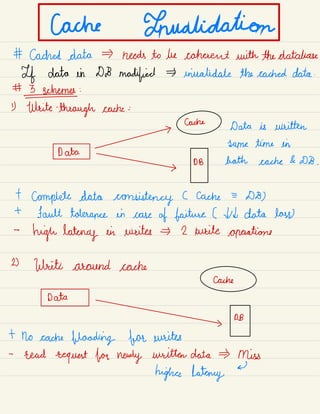 Cache Invalidation
# Cached data ⇒ needs to be coherent with the database
If data in DB modified ⇒ invalidate the cached data.
# 3 schemes:
1) Write-through cache:
Cache
Data
DB
Data is written
same time in
both cache & DB.
+ Complete data consistency ( Cache ≡ DB)
+ Fault tolerance in case of failure ( ↓↓ data loss)
- high latency in writes ⇒ 2 write operations
2) Write around cache
Cache
Data
DB
+ no cache flooding for writes
- read request for newly written data ⇒ Miss
higher latency ↵